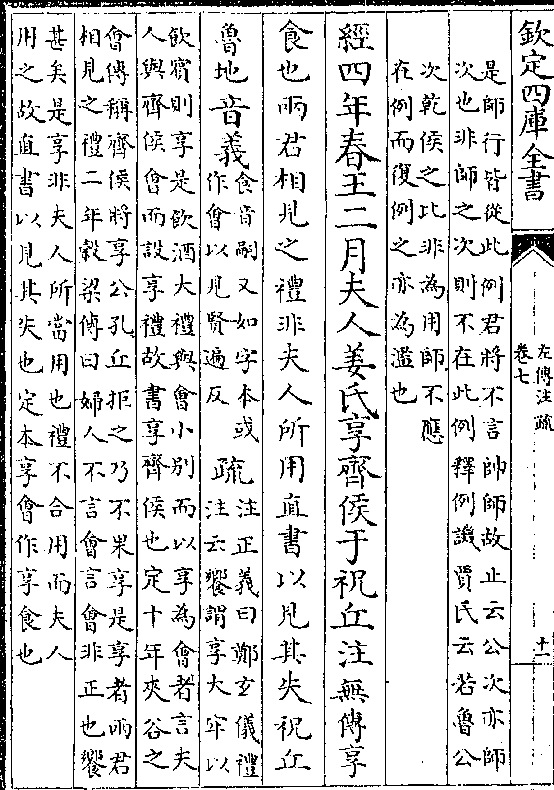 欽定四庫全書
左傳注疏
卷七
十一
是師行皆從此例君將不言帥師故止云公次亦師
次也非師之次則不在此例釋例譏賈氏云若魯公
次乾侯之比非為用師不應
在例而復例之亦為濫也
經四年春王二月夫人姜氏享齊侯于祝丘注無傳享
食也兩君相見之禮非夫人所用直書以見其失祝丘
魯地音義食音嗣又如字本或
作會以見賢遍反
疏注正義曰鄭玄儀禮
注云饗謂享大牢以
飲賓則享是飲酒大禮與會小別而以享為會者言夫
人與齊侯會而設享禮故書享齊侯也定十年夾谷之
會傳稱齊侯將享公孔丘拒之乃不果享是享者兩君
相見之禮二年穀梁傳曰婦人不言會言會非正也饗
甚矣是享非夫人所當用也禮不合用而夫人
用之故直書以見其失也定本享會作享食也